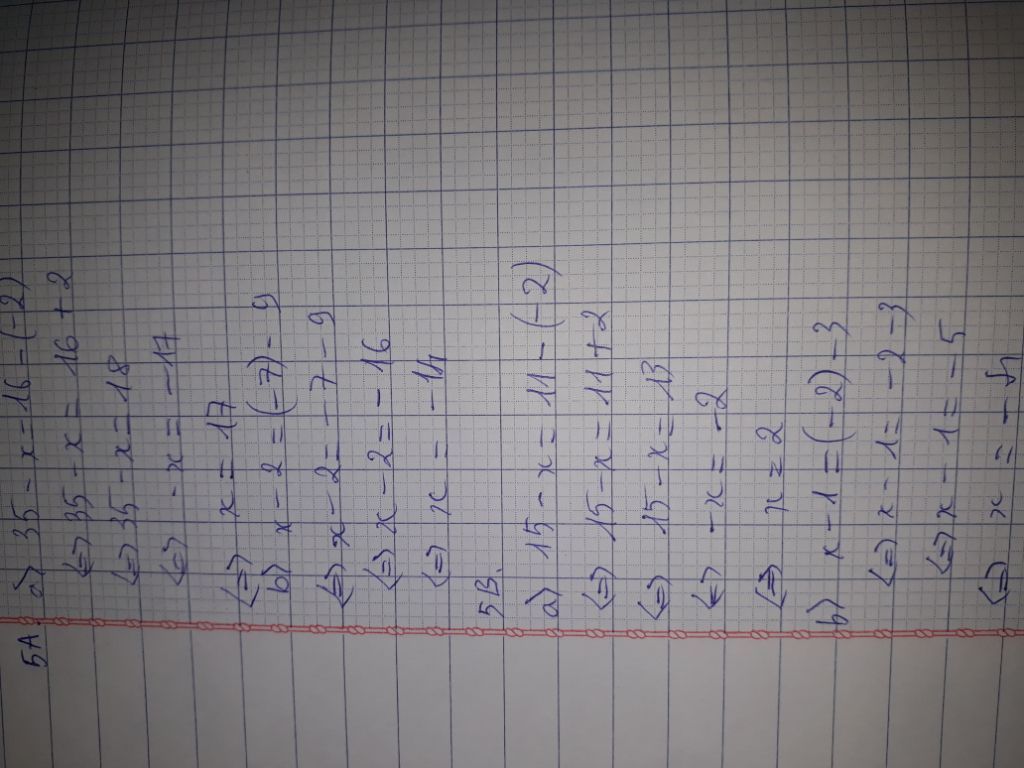 5A. a) 35 - x = 16 - (-2)
<=> 35 - x = 16 + 2
<=> 35 - x = 18
<=> - x = -17
<=> x = 17
b) x - 2 = (-7) - 9
<=> x - 2 = -7 - 9
<=> x - 2 = -16
<=> x = -14
5B.
a) 15 - x = 11 - (-2)
<=> 15 - x = 11 + 2
<=> 15 - x = 13
<=> -x = -2
<=> x = 2
b) x - 1 = (-2) - 3
<=> x - 1 = -2 - 3
<=> x - 1 = -5
<=> x = -4